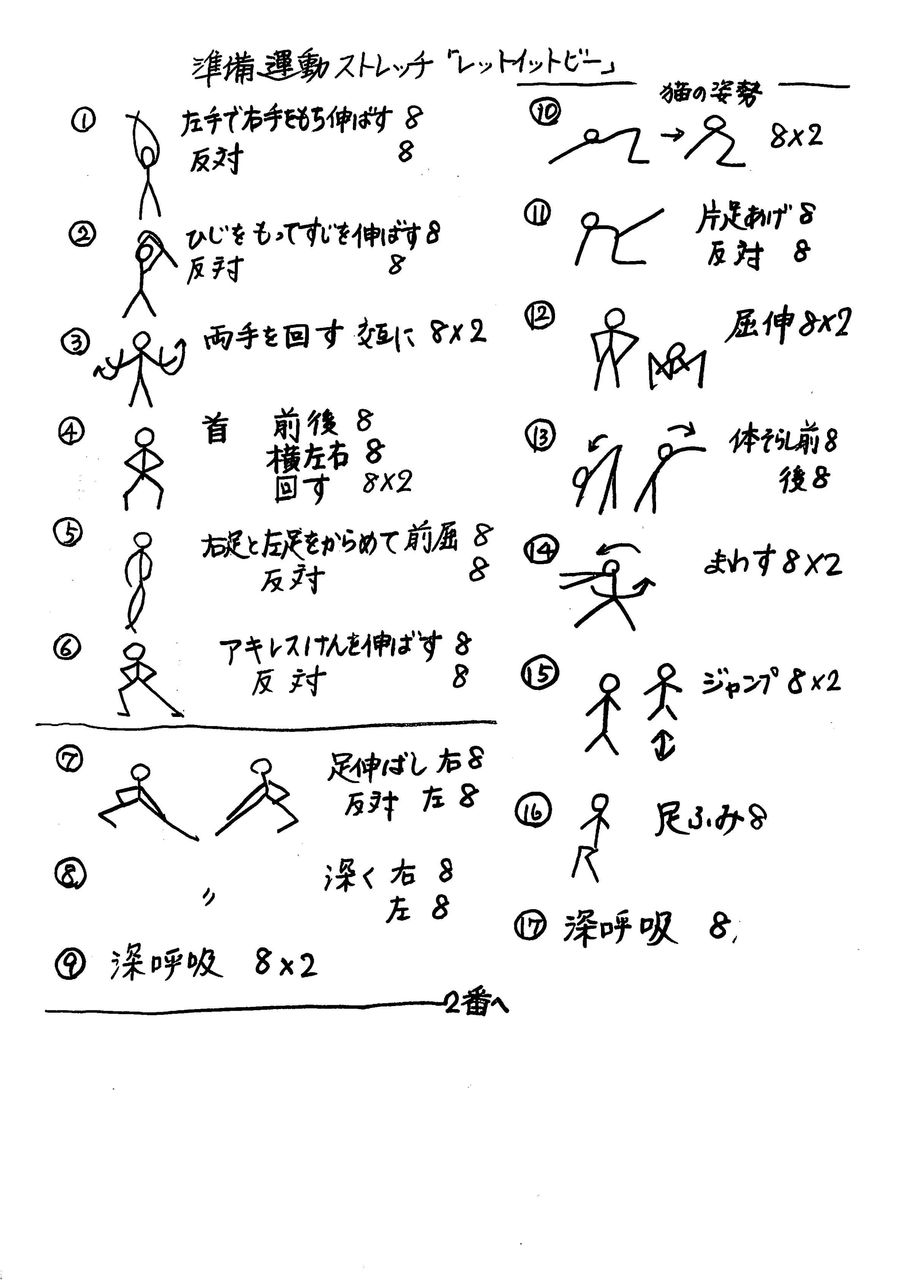 準備運動ストレッチ「レットイットビー」
① 左手で右手をもち伸ばす 8
反対 8
② ひじをもってすじを伸ばす 8
反対 8
③ 両手を回す 交互に 8×2
④ 首 前後 8
横左右 8
回す 8×2
⑤ 右足と左足をからめて前屈 8
反対 8
⑥ アキレスけんを伸ばす 8
反対 8
⑦ 足伸ばし 右 8
反対 左 8
⑧ 〃 深く 右 8
左 8
⑨ 深呼吸 8×2
2番へ
猫の姿勢
⑩ → 8×2
⑪ 片足あげ 8
反対 8
⑫ 屈伸 8×2
⑬ 体そらし前 8
後 8
⑭ まわす 8×2
⑮ ジャンプ 8×2
⑯ 足ふみ 8
⑰ 深呼吸 8